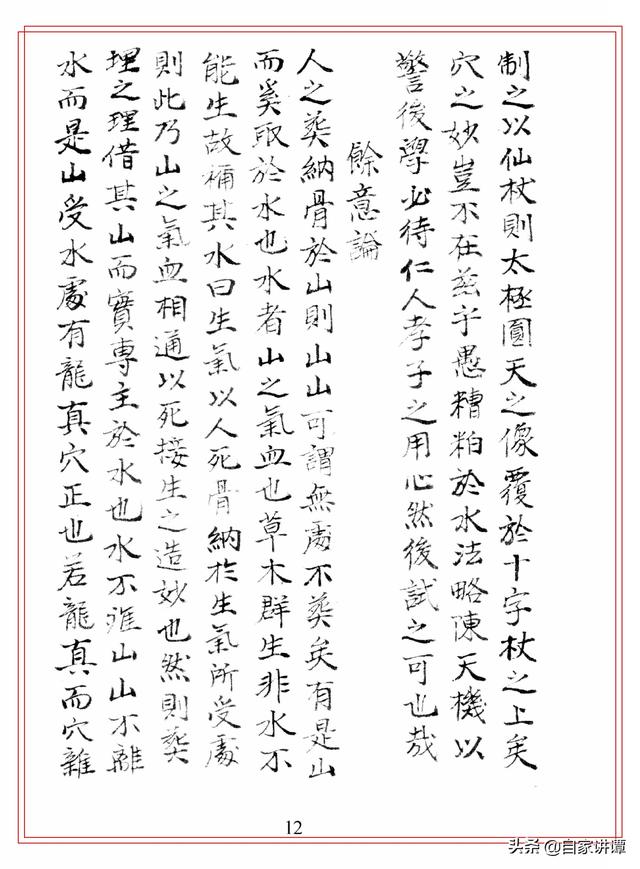 制之以仙杖則太極圓天之像覆於十字杖之上矣
穴之妙豈不在茲乎愚糟粕於水法略陳天機以
警後學必待仁人孝子之用心然後試之可也哉
餘意論
人之葬納骨於山則山山可謂無處不葬矣有是山
而奚取於水也水者山之氣血也草木群生非水不
能生故稱其水曰生氣以人死骨納於生氣所受處
則此乃山之氣血相通以死接生之造妙也然則葬
埋之理借其山而實專主於水也水不離山山不離
水而是山受水處有龍真穴正也若龍真而穴雜
12
头条 @自家讲谭